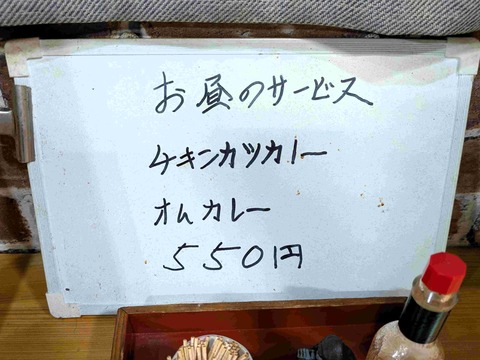 お昼のサービス
チキンカツカレー
オムカレー
550円